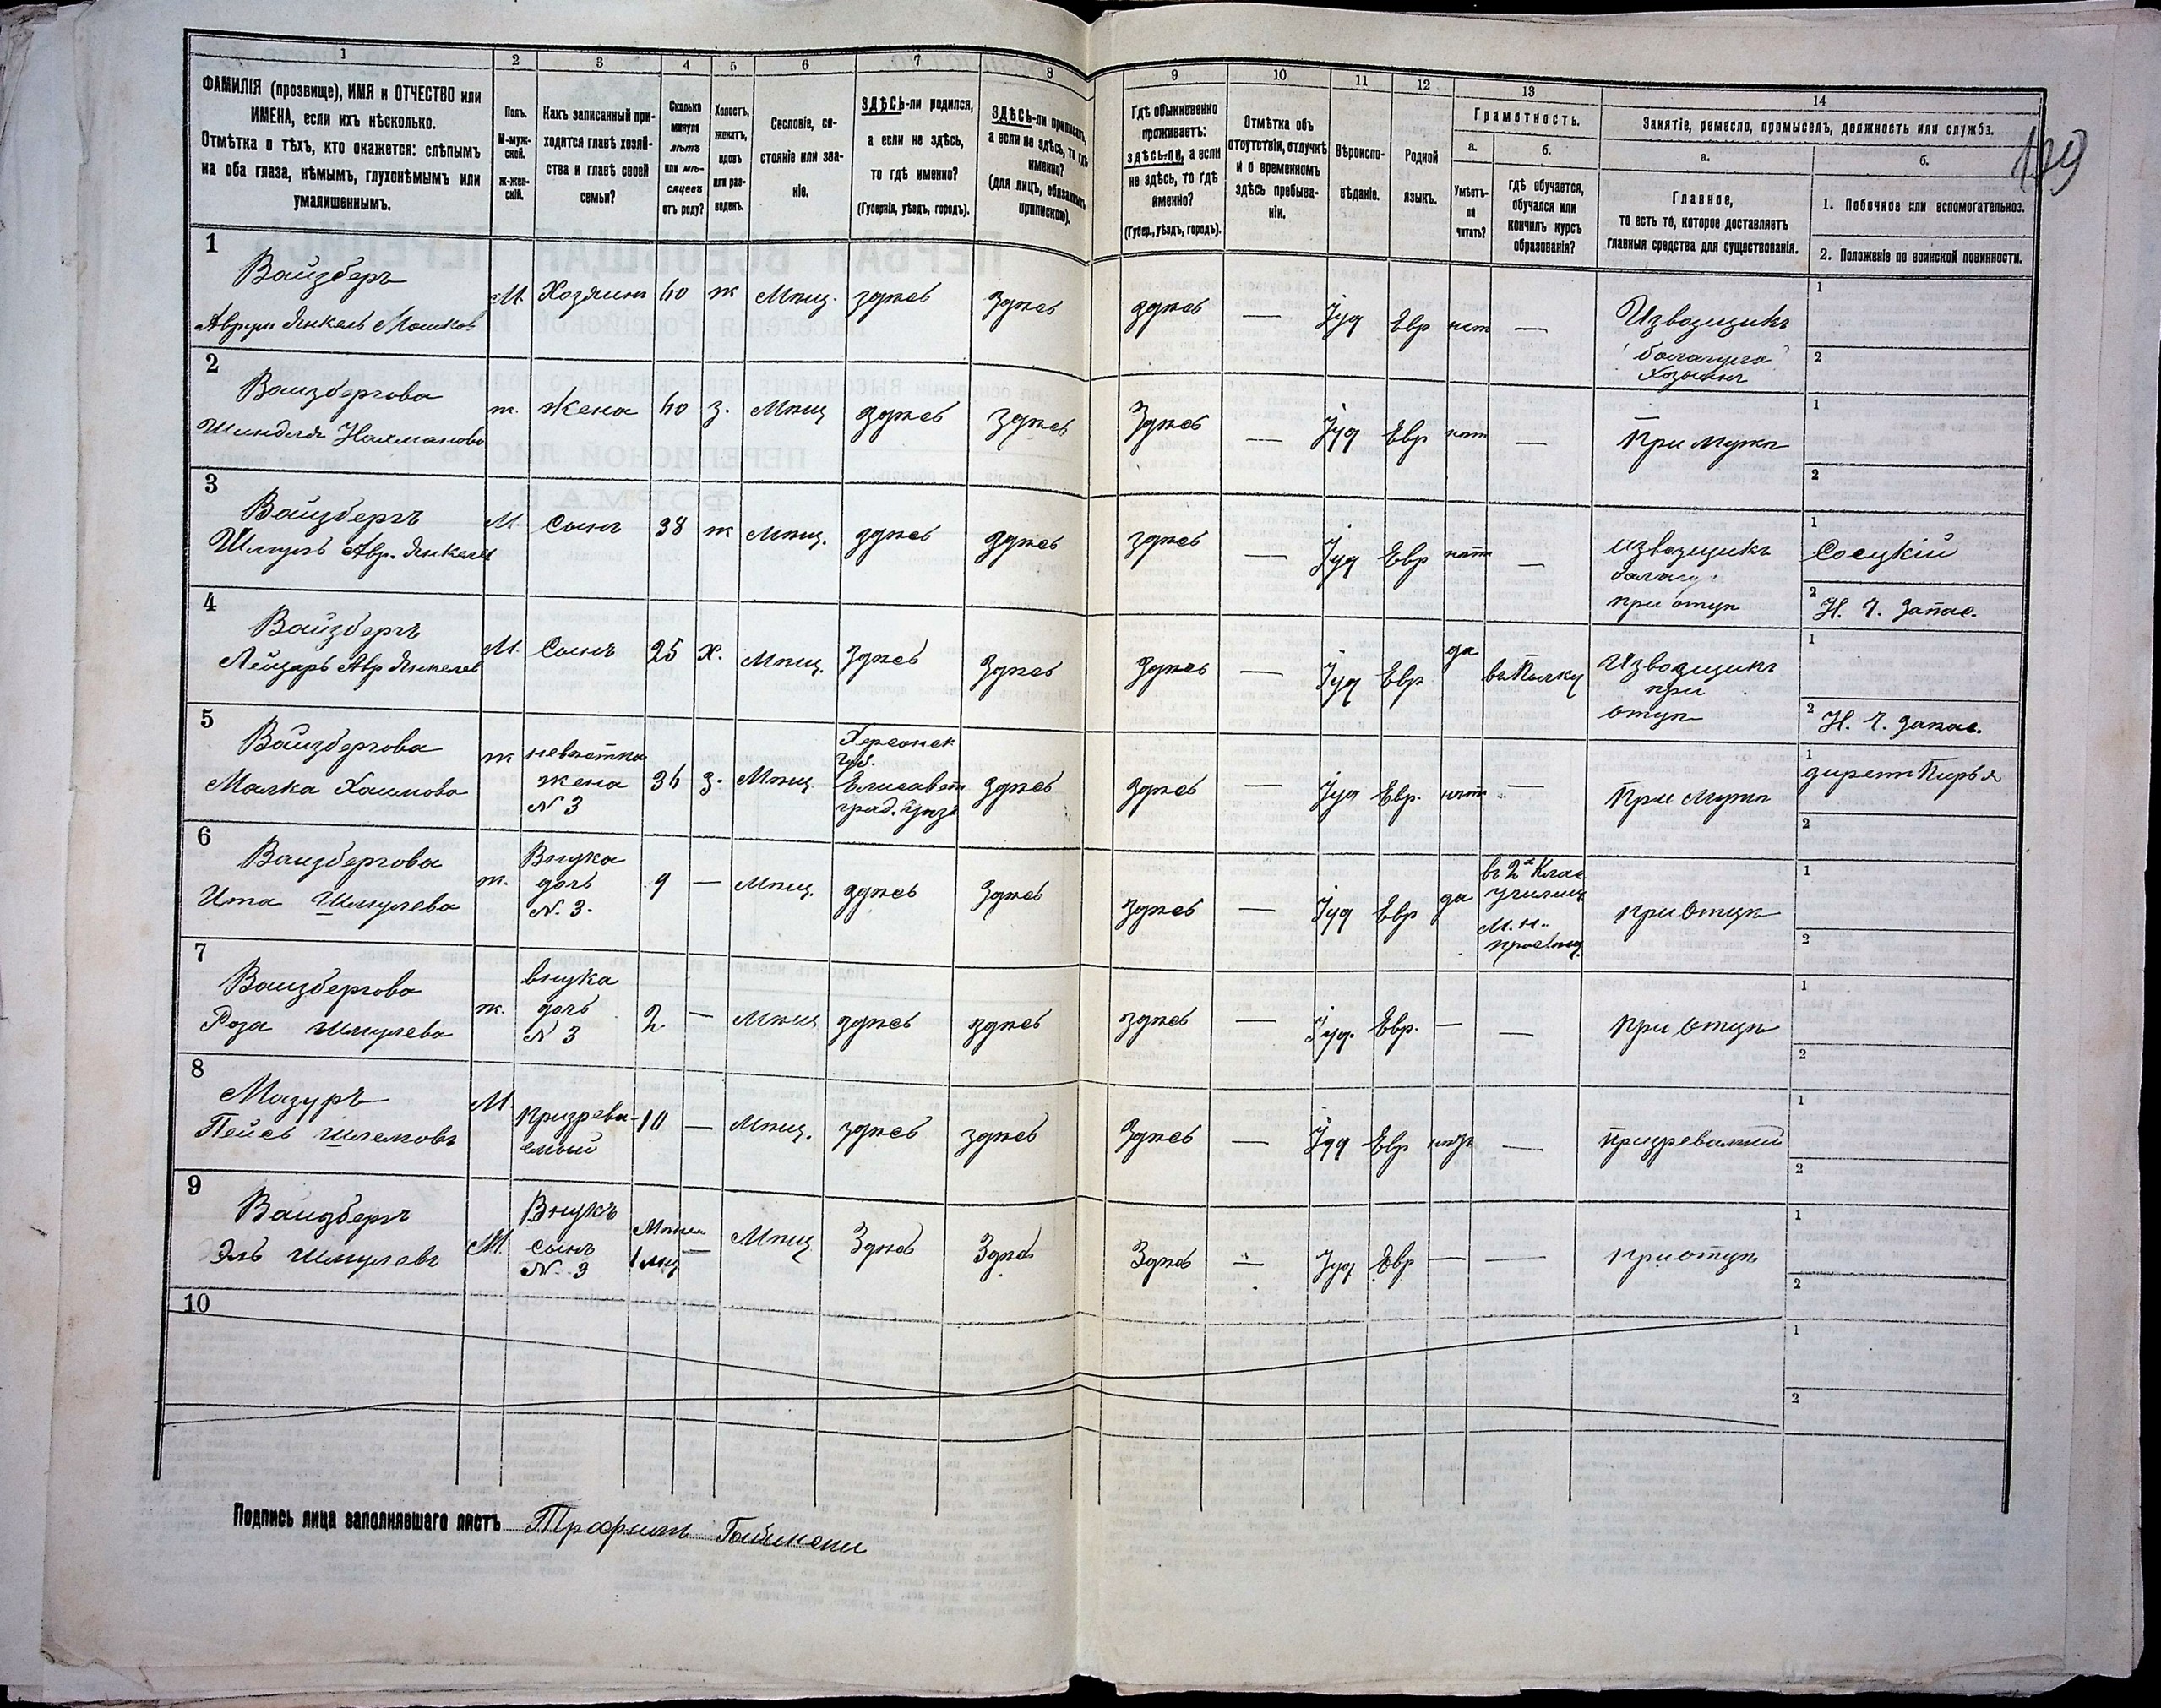 199
1 2 3 4 5 6 7 8 9 10 11 12 13 14
ФАМИЛІЯ (прозвище), ИМЯ и ОТЧЕСТВО или
ИМЕНА, если ихъ нѣсколько.
Отмѣтка о тѣхъ, кто окажется: слѣпымъ
на оба глаза, нѣмымъ, глухонѣмымъ или
умалишеннымъ.
Полъ.
М-муж-
ской.
ж-жен-
скій.
Какъ записанный при-
ходится главѣ хозяй-
ства и главѣ своей
семьи?
Сколько
минуло
лѣтъ
или мѣ-
сяцевъ
отъ роду?
Холостъ,
женатъ,
вдовъ
или раз-
веденъ.
Сословіе, со-
стояніе или зва-
ніе.
ЗДѢСЬ-ли родился,
а если не здѣсь,
то гдѣ именно?
(Губернія, уѣздъ, городъ).
ЗДѢСЬ-ли приписанъ,
а если не здѣсь, то гдѣ
именно?
(для лицъ, обязанныхъ
припискою).
Гдѣ обыкновенно
проживаетъ:
здѣсь-ли, а если
не здѣсь, то гдѣ
именно?
(Губер., уѣздъ, городъ).
Отмѣтка объ
отсутствіи, отлучкѣ
и о временномъ
здѣсь пребыва-
ніи.
Вѣроиспо-
вѣданіе.
Родной
языкъ.
Грамотность.
а.
Умѣетъ-
ли
читать?
б.
гдѣ обучается,
обучался или
кончилъ курсъ
образованія?
Занятіе, ремесло, промыселъ, должность или служба.
а.
Главное,
то есть то, которое доставляетъ
главныя средства для существованія.
б.
1. Побочное или вспомогательное.
2. Положеніе по воинской повинности.
1
Вайзберъ
Аврум Янкель Мошковъ
М. Хозяинъ 60 ж Мѣщ. здѣсь здѣсь здѣсь — Іуд Евр нѣт —
Извозщикъ
балагула
Хозяинъ
1
2
2
Ваизбергова
Шиндля Нахманова
ж. жена 60 з. Мѣщ здѣсь здѣсь Здѣсь — Іуд Евр нѣт —
При мужѣ
1
2
3
Вайзбергъ
Шмуль Авр. Янкелев
М. Сынъ 38 ж Мѣщ. здѣсь здѣсь здѣсь — Іуд Евр нѣт —
извозщикъ
при отцѣ
1 Соцкій
2 Н. Ч. Запас.
4
Вайзбергъ
Лейзарь Авр Янкелев
М. Сынъ 25 Х. Мѣщ. Здѣсь Здѣсь Здѣсь — Іуд Евр да въ Полку
Извозщикъ
при
отцѣ
1
2 Н. Ч. Запас.
5
Вайзбергова
Малка Хаимова
ж
невѣстка
жена
N 3
36 з. Мѣщ.
Херсонск
губ.
Елисавет
град. Уѣзд
Здѣсь здѣсь — Іуд Евр. нѣт —
При мужѣ
1
2
6
Ваизбергова
Ита Шмулева
ж.
Внука
дочь
N. 3.
9 — Мѣщ. здѣсь Здѣсь здѣсь — Іуд Евр да
въ 2х Клас
училищ
М. Н.
просвещ.
при отцѣ
1
2
7
Ваизбергова
Роза Шмулева
ж.
внука
дочь
N 3
2 — Мѣщ здѣсь здѣсь здѣсь — Іуд. Евр. — —
при отцѣ
1
2
8
Мазуръ
Пейсь Шлемовъ
М
призрева-
емый
10 — Мѣщ. здѣсь здѣсь Здѣсь — Іуд Евр нѣт —
призреваемый
1
2
9
Вайзбергъ
Эль Шмулевъ
М.
Внукъ
сынъ
N. 3
1 мѣс — Мѣщ Здѣсь Здѣсь Здѣсь — Іуд Евр — —
при отцѣ
1
2
10
1
2
Подпись лица заполнявшаго листъ Трофимъ